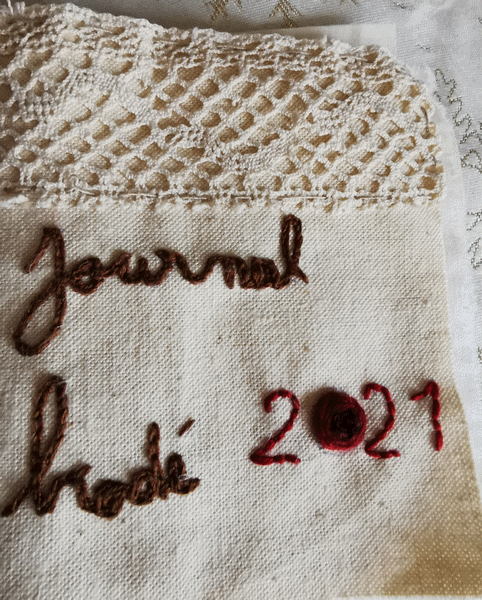 Journal
brodé 2021